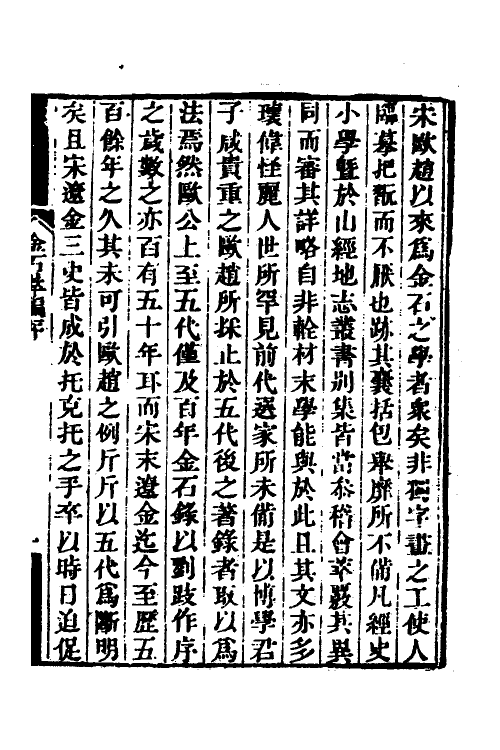 宋歐趙以來爲金石之學者衆矣非獨字畫之工使人
臨摹把翫而不厭也跡其囊括包舉靡所不備凡經史
小學曁於山經地志叢書別集皆當參稽會萃覈其異
同而審其詳略自非輇材末學能與於此且其文亦多
瓌偉怪麗人世所罕見前代選家所未備是以博學君
子咸貴重之歐趙所採止於五代後之著錄者取以爲
法焉然歐公上至五代僅及百年金石錄以劉跂作序
之歲數之亦百有五十年耳而宋末遼金迄今至歷五
百餘年之久其未可引歐趙之例斤斤以五代爲斷明
矣且宋遼金三史皆成於托克托之手卒以時日迫促
金石萃編序
一